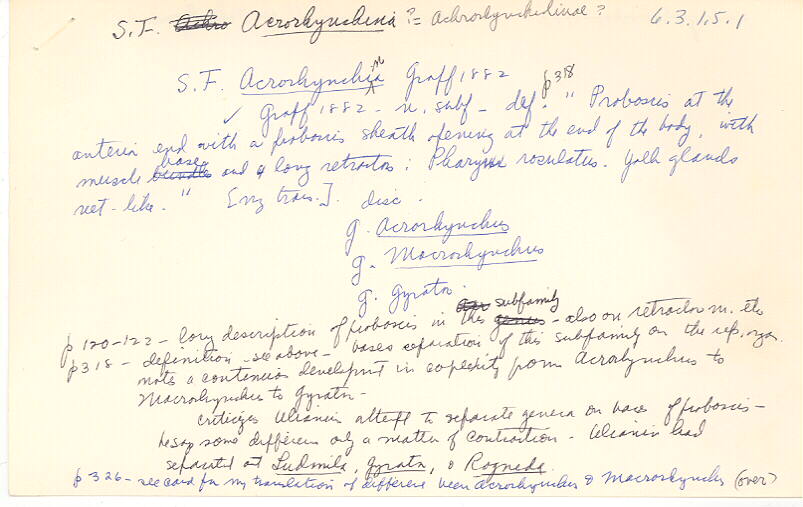 S.F. Achro Acrorhynchinia ?= Achrorhynchidinae? 6.3.1.5.1
S.F. Acrorhynchina Graff 1882 p 318
✓ Graff 1882 - n. subf - def. " Proboscis at the
anterior end with a proboscis sheath opening at the end of the body, with
muscle bundles base and 4 long retractors: Pharynx rosulatus. Yolk glands
net-like. " [my trans.]. disc.
g. Acrorhynchus
g. Macrorhynchus
g. Gyrator.
p 120-122 - long description of proboscis in this genus subfamily - also on retractor m. etc
p 318 - definition - see above - bases separation of this subfamily on the rep. organ.
notes a continuous development in complexity from Acrorhynchus to
Macrorhynchus to Gyrator -
criticizes Ulianin attempt to separate genera on bases of proboscis -
he says some differences only a matter of contraction - Ulianin had
separated out Ludmila, Gyrator, & Rogneda.
p 326 - see card for my translation of difference between Acrorhynchus & Macrorhynchus (over)